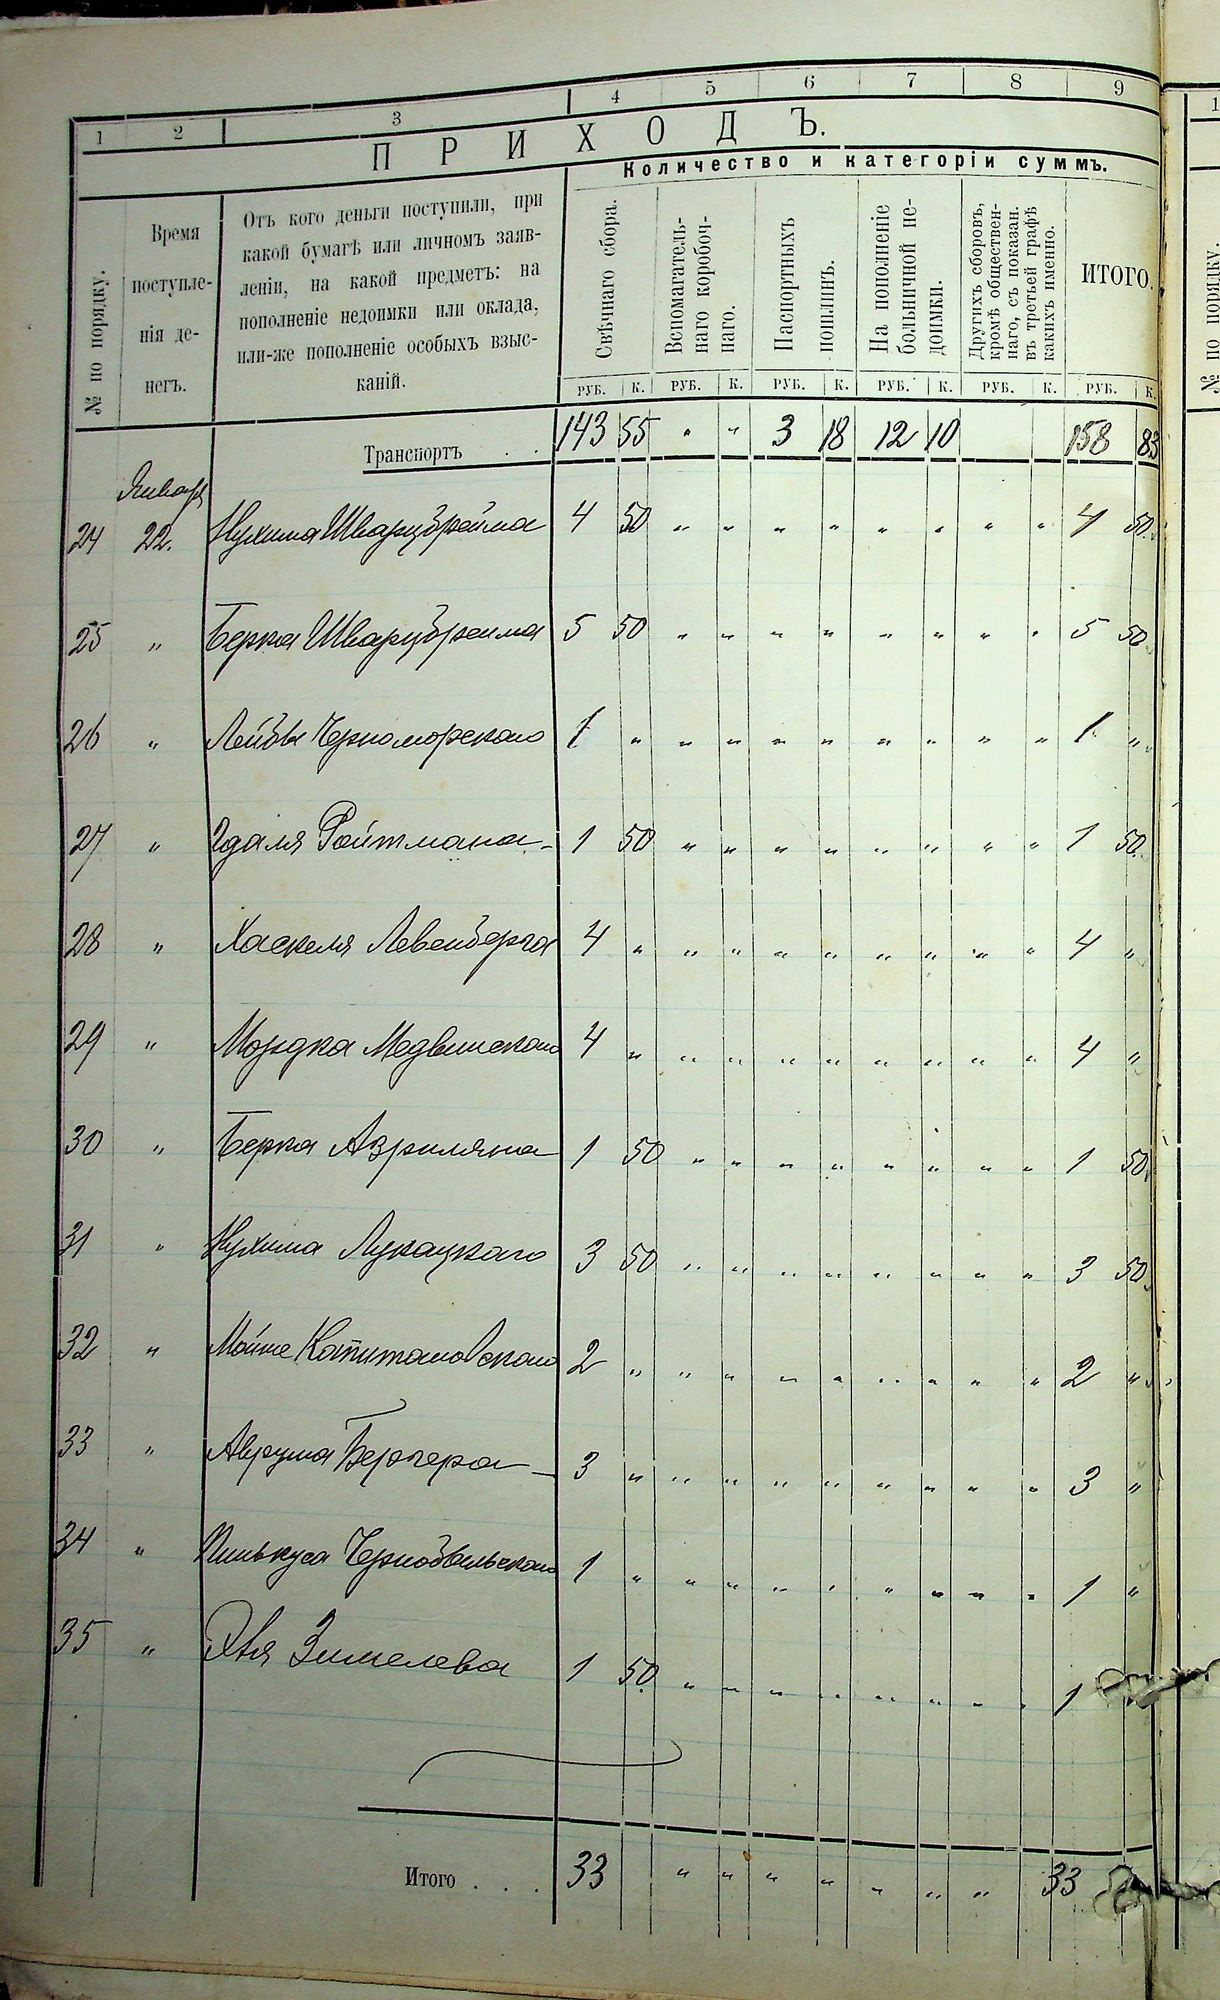 1 2 3 4 5 6 7 8 9
ПРИХОДЪ.
№ по порядку.
Время поступле-
нія де-
негъ.
Отъ кого деньги поступили, при
какой бумагѣ или личномъ заяв-
леніи, на какой предметъ: на
пополненіе недоимки или оклада,
или-же пополненіе особыхъ взыс-
каній.
Количество и категоріи суммъ.
Свѣчнаго сбора.
Вспомагатель-
наго коробоч-
наго.
Паспортныхъ
пошлинъ.
На пополненіе
больничной не-
доимки.
Другихъ сборовъ,
кромѣ обществен-
наго, съ показан.
въ третьей графѣ
какихъ именно.
ИТОГО.
РУБ. К. РУБ. К. РУБ. К. РУБ. К. РУБ. К. РУБ. К.
Транспортъ . . 143 55 " " 3 18 12 10 158 83
Января
24 22. Нухима Шварцбрейма 4 50 " " " " " " " " 4 50
25 " Берка Шварцбрейма 5 50 " " " " " " " " 5 50
26 " Лейбы Черноморскаго 1 " " " " " " " " " 1 "
27 " Гдаля Ройтмана 1 50 " " " " " " " " 1 50
28 " Хаскеля Левенберга 4 " " " " " " " " " 4 "
29 " Мордка Медвинскаго 4 " " " " " " " " " 4 "
30 " Берка Азриляна 1 50 " " " " " " " " 1 50
31 " Нухима Лукацкаго 3 50 " " " " " " " " 3 50
32 " Мойше Капитановскаго 2 " " " " " " " " " 2 "
33 " Аврума Бергера 3 " " " " " " " " " 3 "
34 " Пинькуса Чернобыльскаго 1 " " " " " " " " " 1 "
35 " Зимелева 1 50 " " " " " " " " 1
Итого . . . 33 " " " " " " " 33
1
№ по порядку.